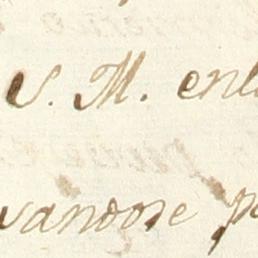 S. M. enl
vandose p